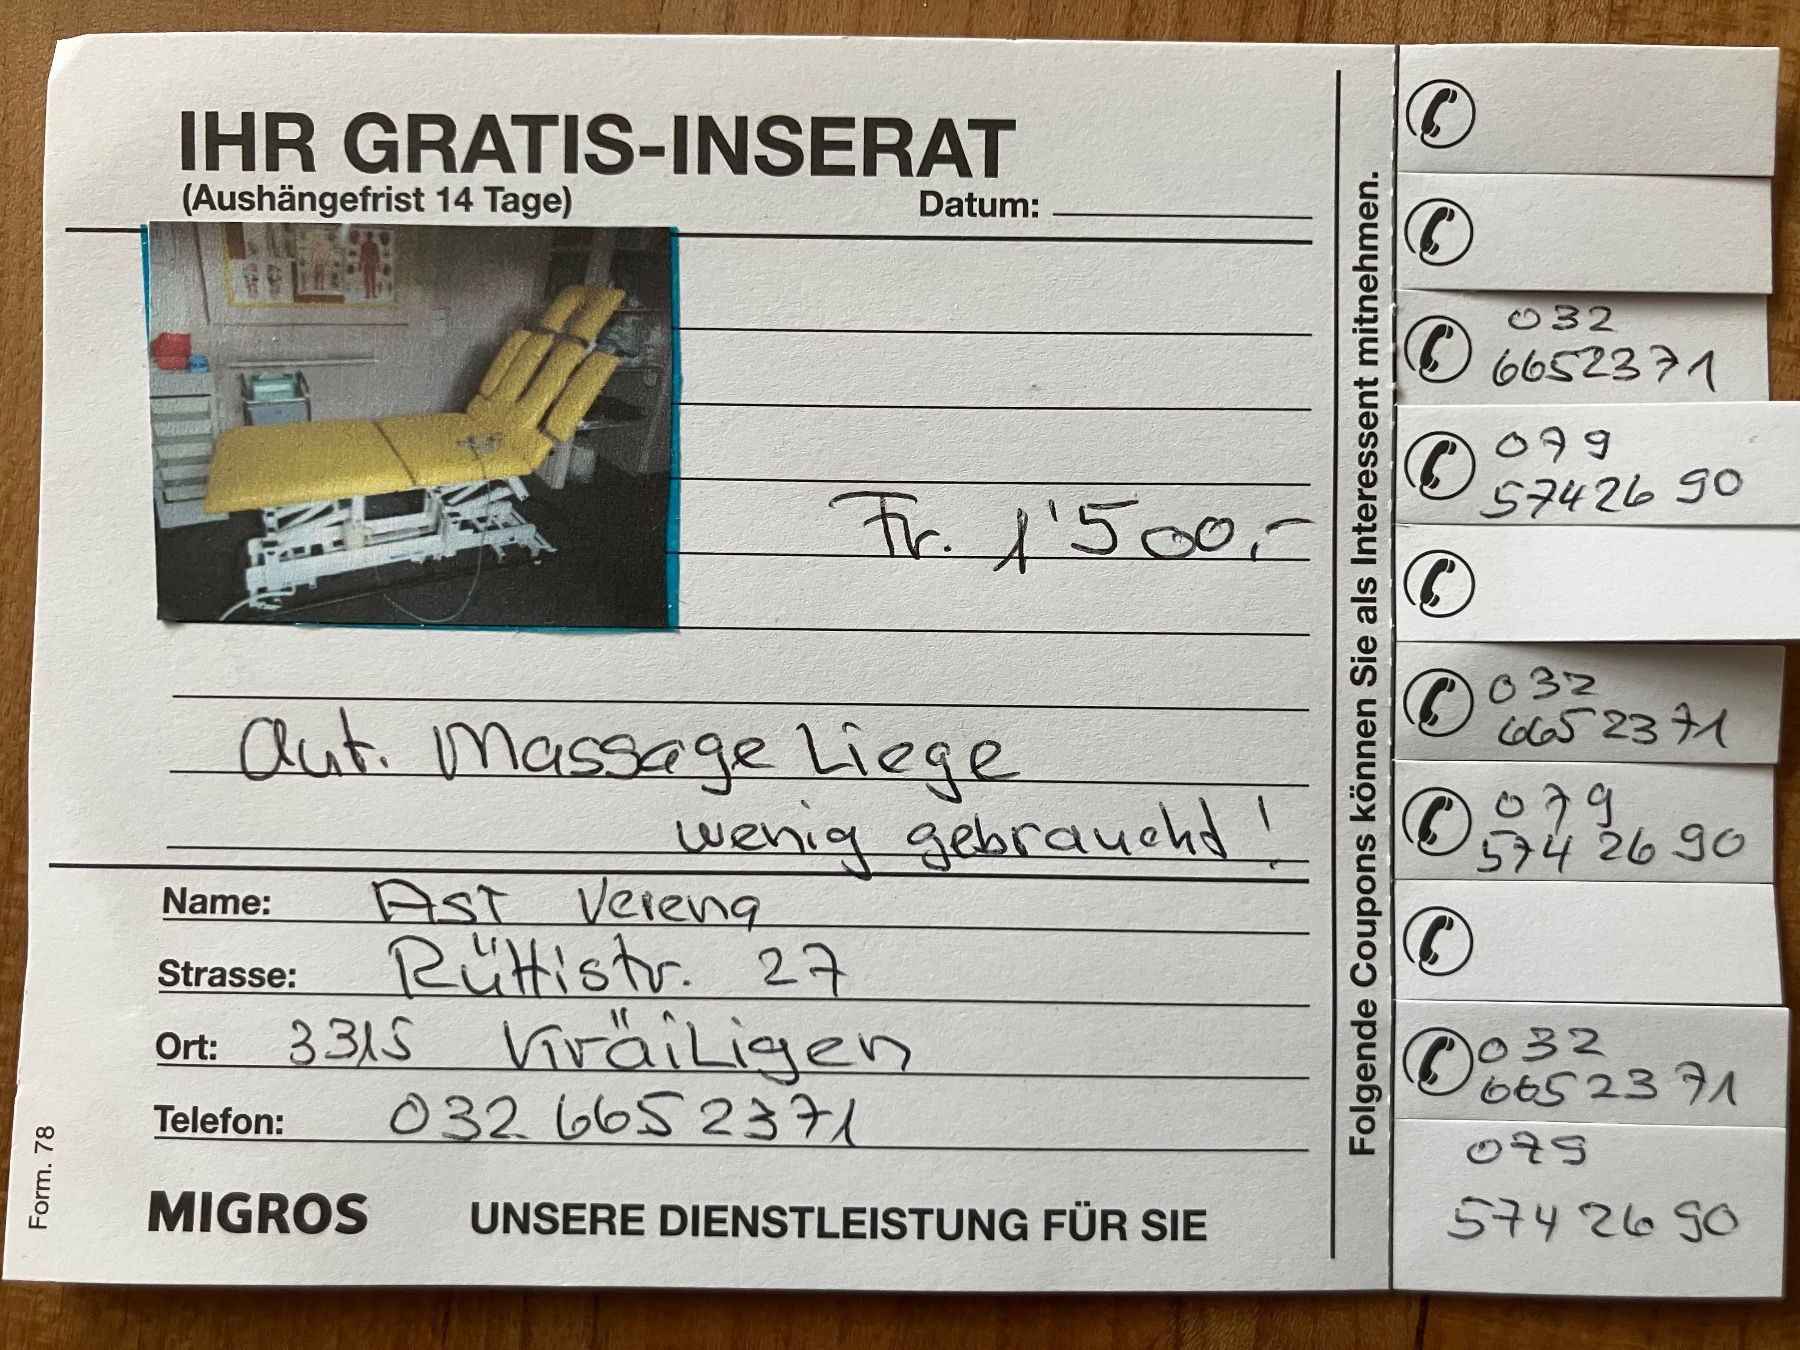 IHR GRATIS-INSERAT
(Aushängefrist 14 Tage)
Datum:
Fr. 1'500.-
Aut. Massage Liege
wenig gebraucht!
Name: Ast Verena
Strasse: Rüttistr. 27
Ort: 3315 Kräiligen
Telefon: 032 665 23 71
MIGROS UNSERE DIENSTLEISTUNG FÜR SIE
Form. 78
Folgende Coupons können Sie als Interessent mitnehmen.
032
665 23 71
079
574 26 90
032
665 23 71
079
574 26 90
032
665 23 71
079
574 26 90